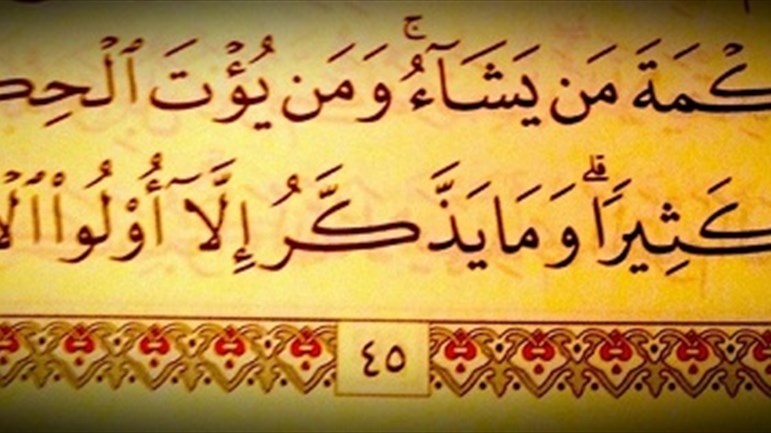 كْمَةَ مَن يَشَآءُ ۚ وَمَن يُؤْتَ ٱلْحِك
كَثِيرًا ۗ وَمَا يَذَّكَّرُ إِلَّآ أُو۟لُوا۟ ٱلْأ
٤٥